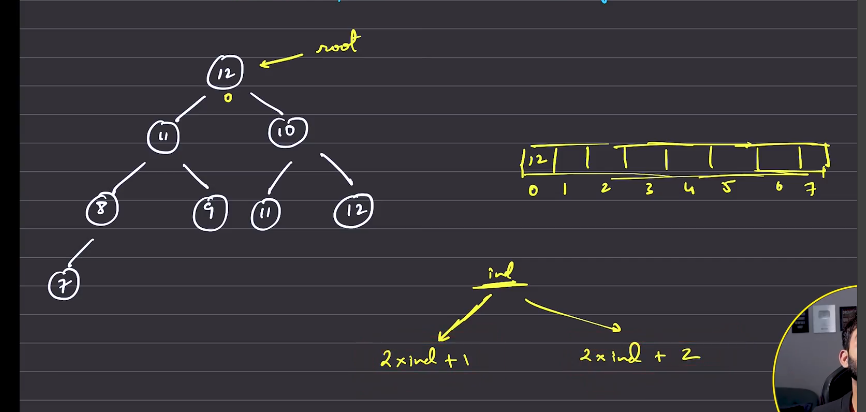 root
12
0
11 10
8 9 11 12
7
12
0 1 2 3 4 5 6 7
ind
2 x ind + 1 2 x ind + 2